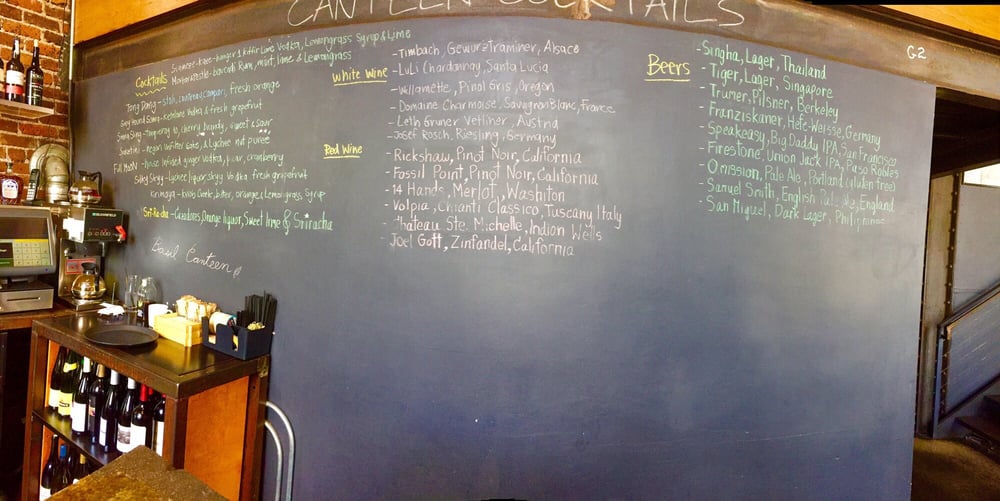 CANTEEN COCKTAILS
G-2
Cocktails
Siamese-Kaze-hangar 1 Kiffir Lime Vodka, Lemongrass Syrup & Lime
Bacardi Rum, mint, lime & Lemongrass
Tong Dang - stoli, cantreau, campari, fresh orange
Greyhound Song - Ketelone Vodka, & fresh grapefruit
Sing Sling - Tanqueray 10, cherry brandy, sweet & sour
& Lychee nut puree
Full Moon - house infused ginger vodka, pear, cranberry
Silky Skyy - lychee liquor, skyy vodka fresh grapefruit
Geek, bitter, orange & Lemongrass, Syrup
Sriracha - Cazadores, Orange liquor, Sweet lime & Sriracha
Basil Canteen
White Wine
- Timbach, Gewurztraminer, Alsace
- Luli Chardonnay, Santa Lucia
- Willamette, Pinot Gris, Oregon
- Domaine Charmoise, Sauvignon Blanc, France
- Leth Gruner Vetliner, Austria
- Josef Rosch, Riesling, Germany
Red Wine
- Rickshaw, Pinot Noir, California
- Fossil Point, Pinot Noir, California
- 14 Hands, Merlot, Washiton
- Volpia, Chianti Classico, Tuscany Italy
- Chateau Ste. Michelle, Indian Wells
- Joel Gott, Zinfandel, California
Beers
- Singha, Lager, Thailand
- Tiger, Lager, Singapore
- Trumer, Pilsner, Berkeley
- Franziskaner, Hefe-Weisse, Germany
- Speakeasy, Big Daddy IPA, San Francisco
- Firestone, Union Jack IPA, Paso Robles
- Omission, Pale Ale, Portland (gluten free)
- Samuel Smith, English Pale Ale, England
- San Miguel, Dark Lager, Philippines